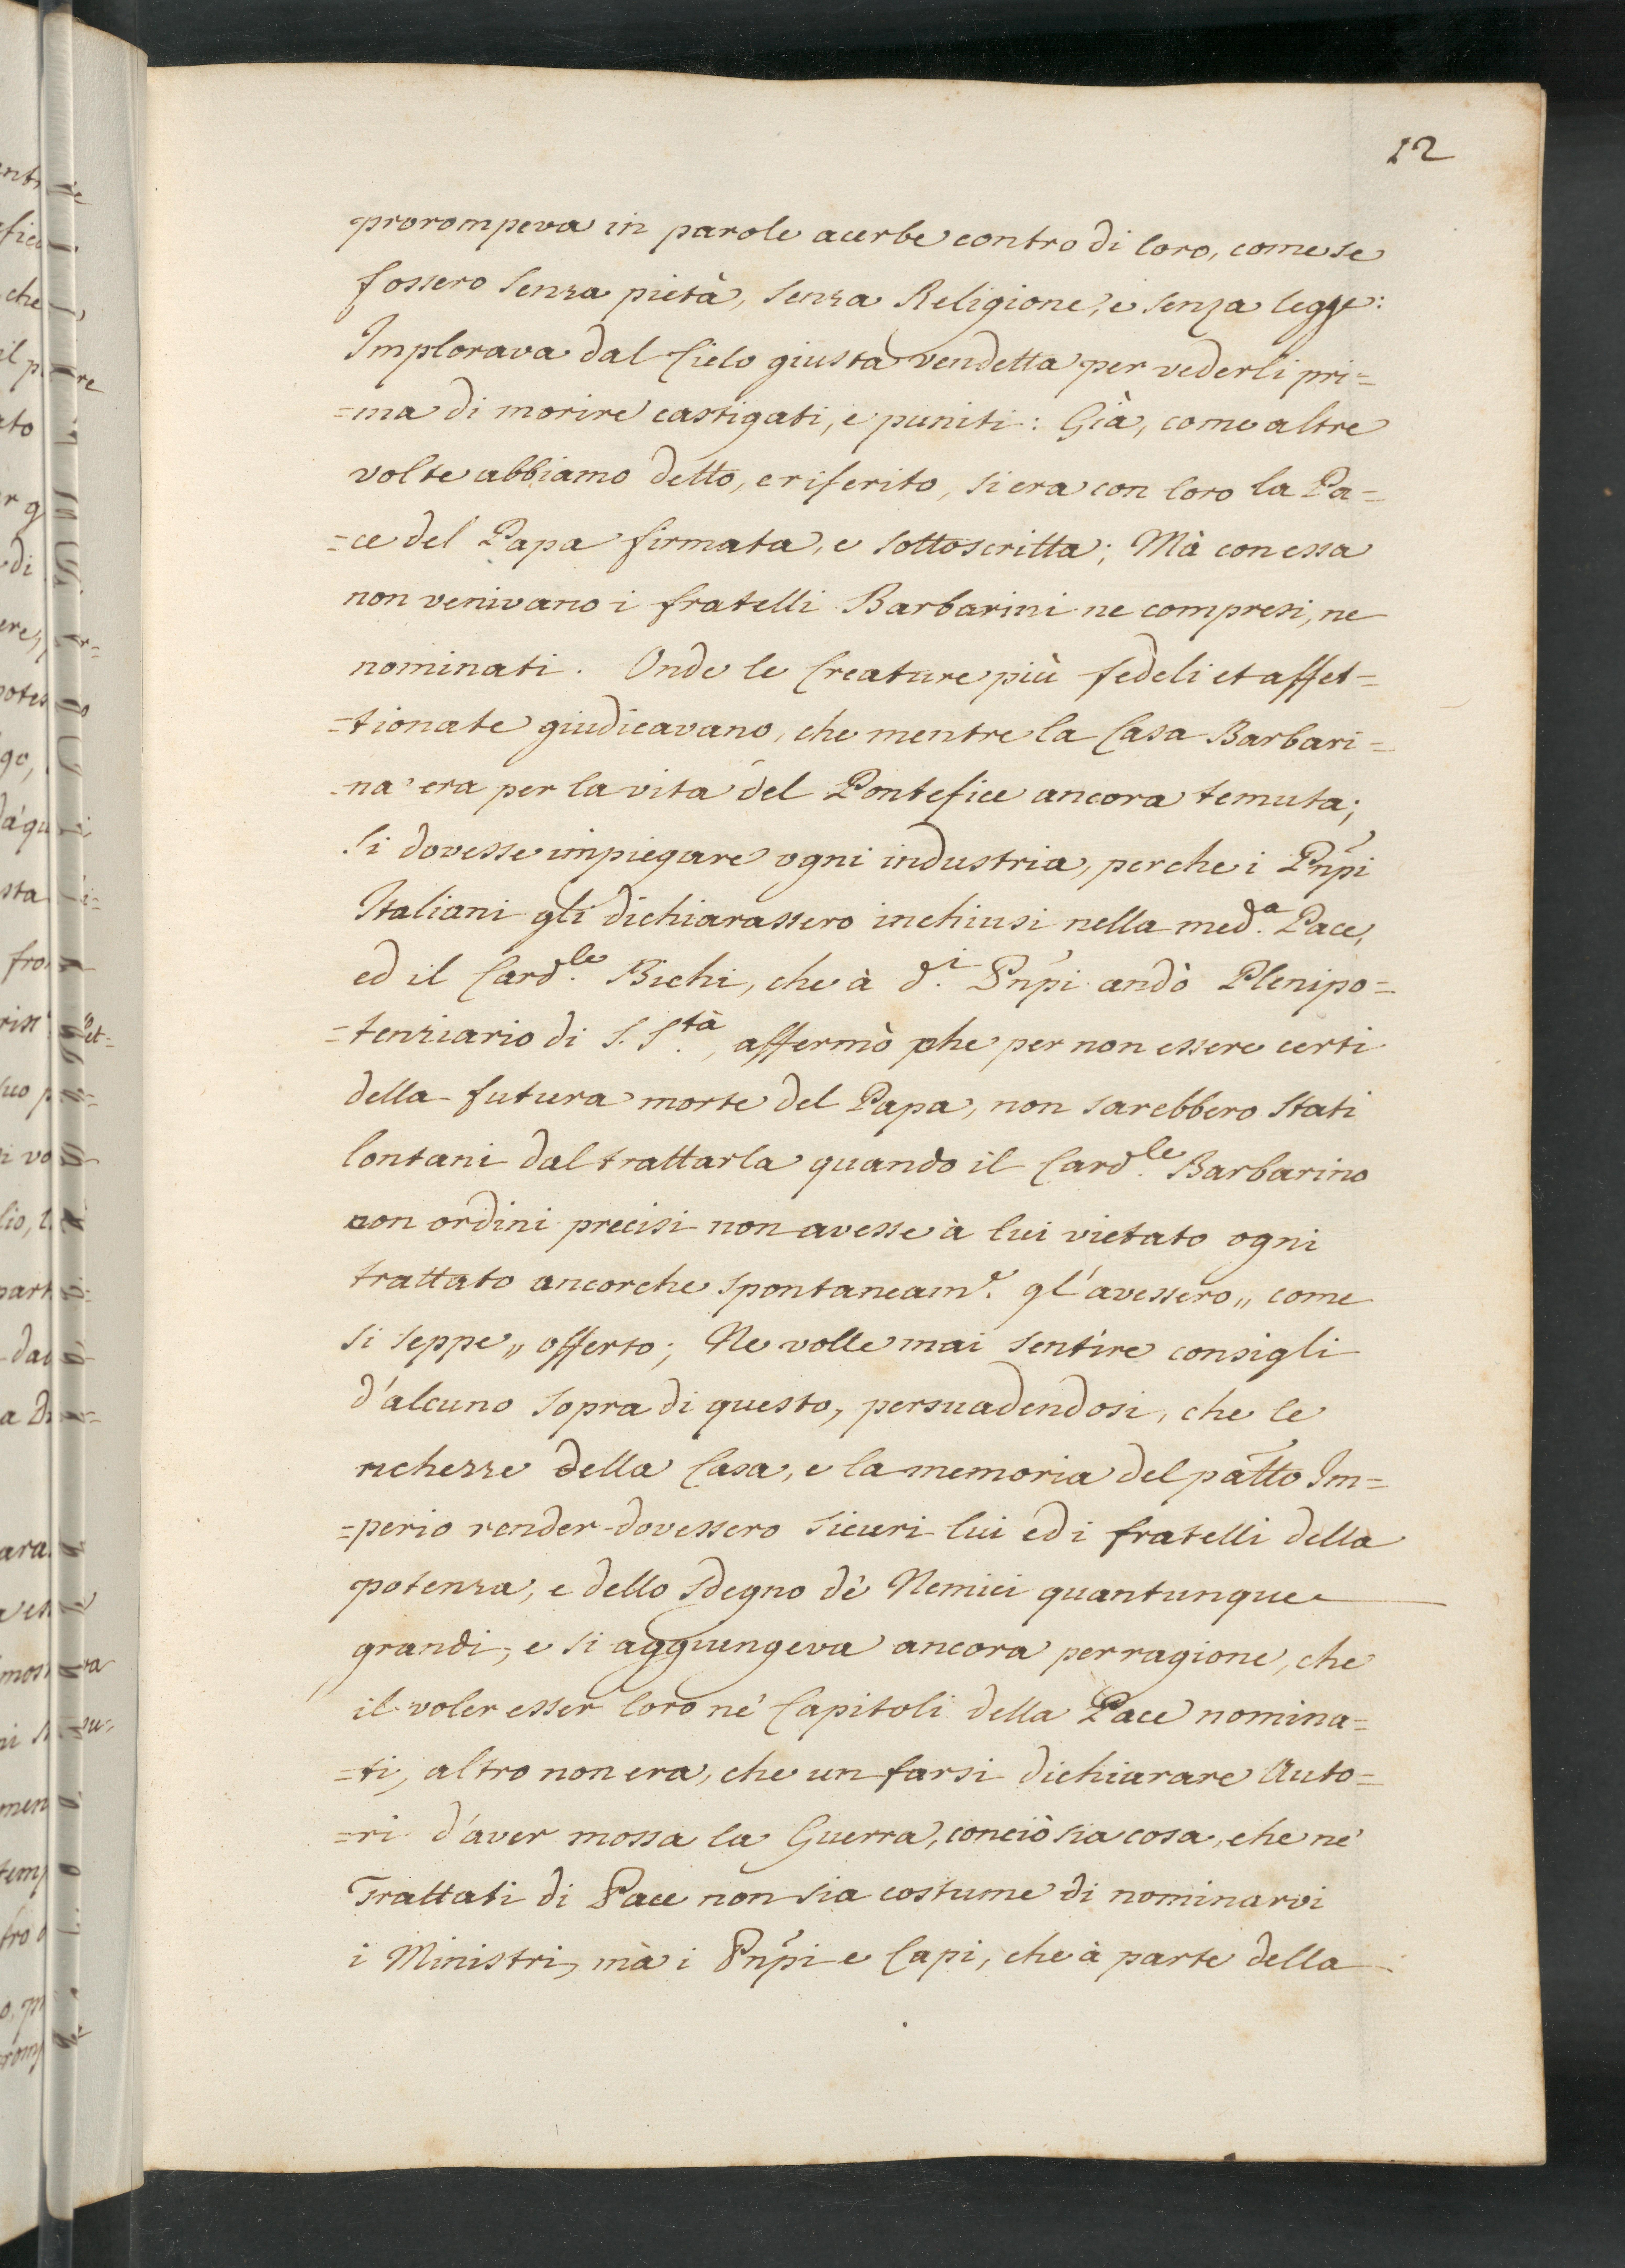 12
prorompeva in parole acerbe contro di loro, come se
fossero senza pietà, senza Religione, e senza legge:
Implorava dal Cielo giusta vendetta per vederli pri=
=ma di morire castigati, e puniti: Già, come altre
volte abbiamo detto, e riferito, si era con loro la Pa=
=ce del Papa firmata, e sottoscritta; Mà con essa
non venivano i fratelli Barbarini ne compresi, ne
nominati. Onde le Creature più fedeli et affet=
=tionate giudicavano, che mentre la Casa Barbari=
na era per la vita del Pontefice ancora temuta;
si dovesse impiegare ogni industria, perche i Pnpi
Italiani gli dichiarassero inchiusi nella med.a Pace,
ed il Card.le Bichi, che à d.i Pnpi andò Plenipo=
=tenziario di S. S.tà, affermò che per non essere certi
della futura morte del Papa, non sarebbero stati
lontani dal trattarla quando il Card.le Barbarino
con ordini precisi non avesse à lui vietato ogni
trattato ancorche spontaneam.e gl'avessero,, come
si seppe,, offerto; Ne volle mai sentire consigli
d'alcuno sopra di questo, persuadendosi, che le
richezze della Casa, e la memoria del patto Im=
=perio render dovessero sicuri lui ed i fratelli della
potenza, e dello sdegno dè Nemici quantunque
grandi, e si aggiungeva ancora per ragione, che
il voler esser loro nè Capitoli della Pace nomina=
=ti, altro non era, che un farsi dichiarare Auto=
=ri d'aver mossa la Guerra, conciò sia cosa, che nè
Trattati di Pace non sia costume di nominarvi
i Ministri, mà i Pnpi e Capi, che à parte della